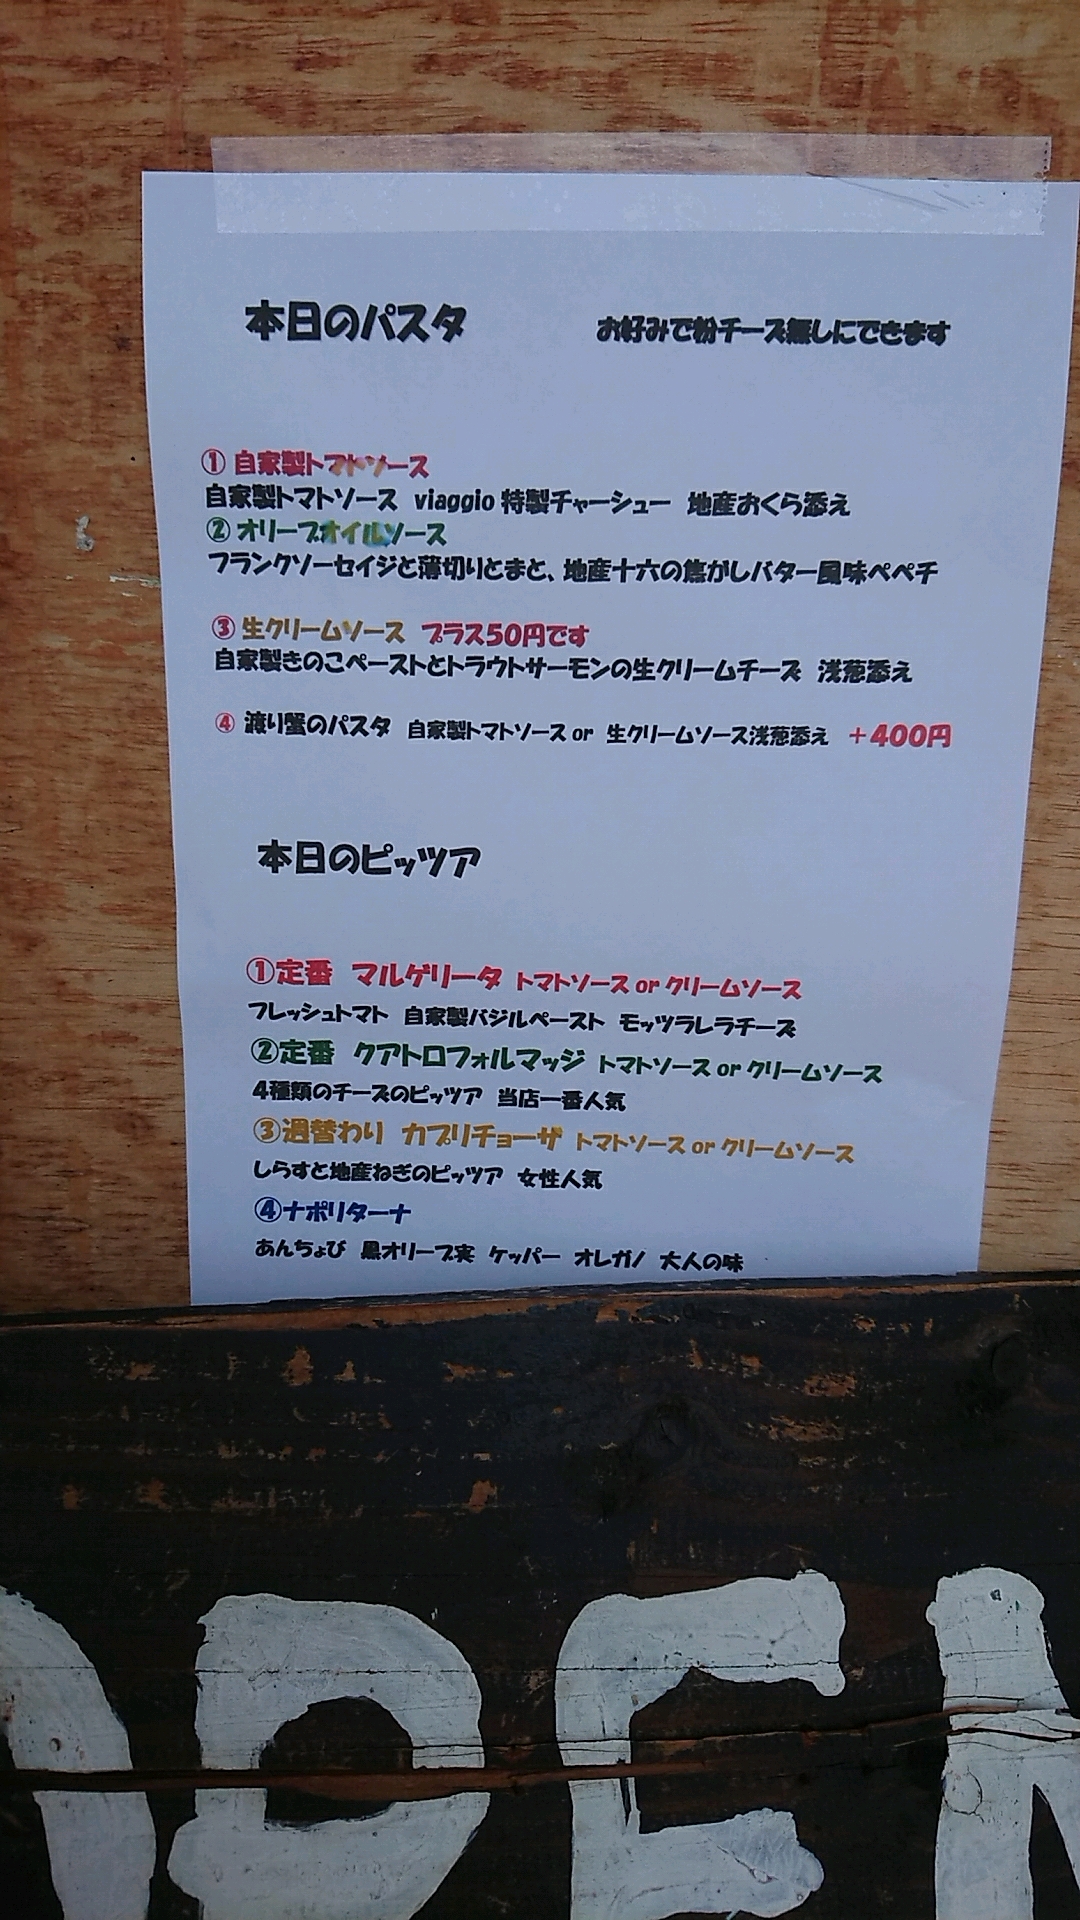 本日のパスタ お好みで粉チーズ無しにできます
① 自家製トマトソース
自家製トマトソース viaggio 特製チャーシュー 地産おくら添え
② オリーブオイルソース
フランクソーセイジと薄切りとまと、地産十六の焦がしバター風味ペペチ
③ 生クリームソース プラス50円です
自家製きのこペーストとトラウトサーモンの生クリームチーズ 浅葱添え
④ 渡り蟹のパスタ 自家製トマトソース or 生クリームソース浅葱添え +400円
本日のピッツア
①定番 マルゲリータ トマトソース or クリームソース
フレッシュトマト 自家製バジルペースト モッツラレラチーズ
②定番 クアトロフォルマッジ トマトソース or クリームソース
4種類のチーズのピッツア 当店一番人気
③週替わり カプリチョーザ トマトソース or クリームソース
しらすと地産ねぎのピッツア 女性人気
④ナポリターナ
あんちょび 黒オリーブ実 ケッパー オレガノ 大人の味
OPEN